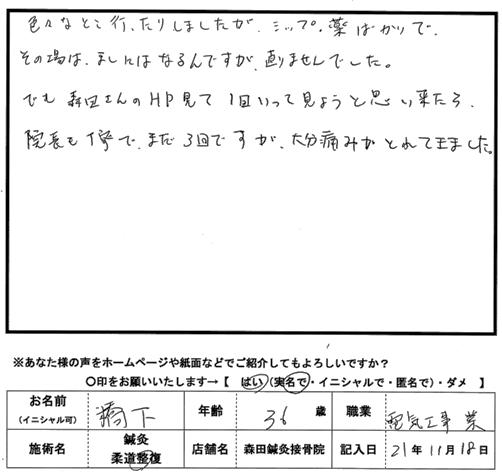 色々なとこ行ったりしましたが、シップ・薬ばかりで、
その場は、ましにはなるんですが、直りませんでした。
でも森田さんのHP見て1回いって見ようと思い来たら、
院長も丁寧で、まだ3回ですが、大分痛みがとれて来ました。
※あなた様の声をホームページや紙面などでご紹介してもよろしいですか？
〇印をお願いいたします→【 はい（実名で・イニシャルで・匿名で）・ダメ 】
お名前 （イニシャル可） 橋下 年齢 36 歳 職業 電気工事業
施術名 鍼灸 柔道整復 店舗名 森田鍼灸接骨院 記入日 21年11月18日